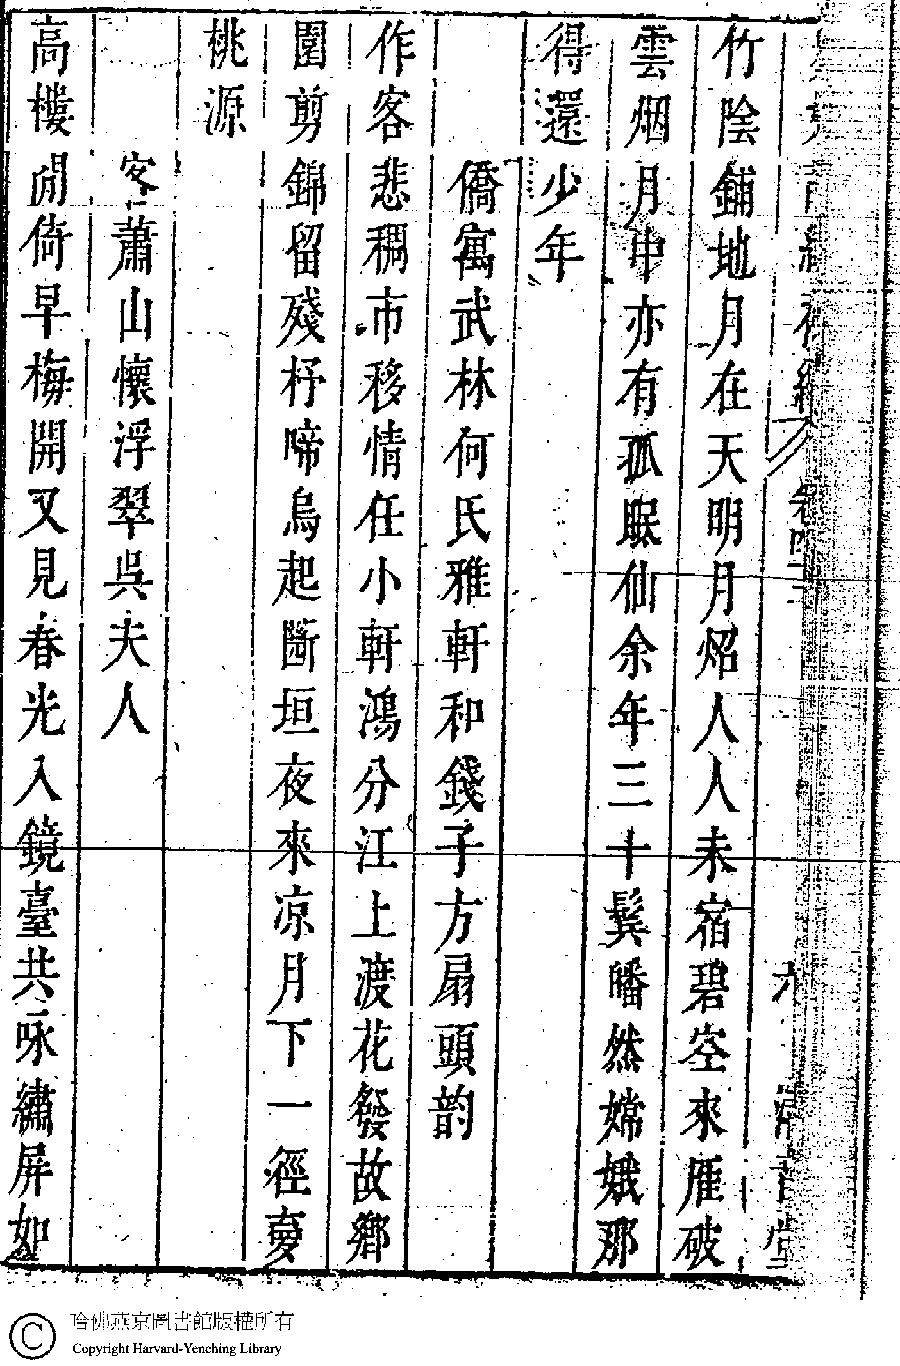 竹陰鋪地月在天明月炤人人未宿碧空來雁破
雲烟月中亦有孤眠仙余年三十鬂皤然嫦娥那
得還少年
僑寓武林何氏雅軒和錢子方扇頭韵
作客悲稠市移情任小軒鴻分江上渡花發故鄉
園剪錦留殘杼啼烏起斷垣夜來凉月下一徑夢
桃源
客蕭山懷浮翠吳夫人
高樓閒倚早梅開又見春光入鏡臺共咏繡屏如
哈佛燕京圖書館版權所有
Copyright Harvard-Yenching Library